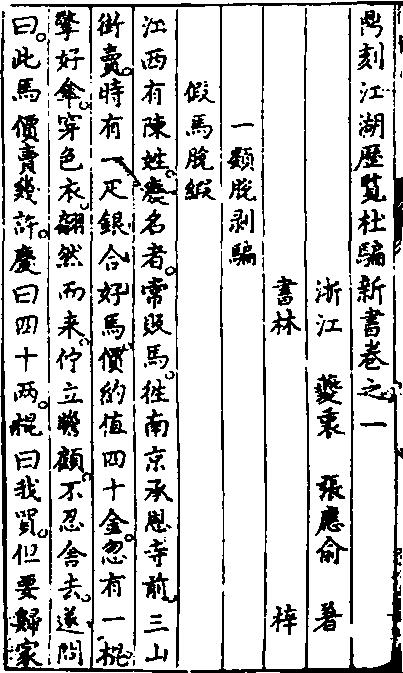 鼎刻江湖歷覧杜騙新書卷之一
浙江 夔衷 張應俞 著
書林 梓
一類脫剥騙
假馬脫緞
江西有陳姓。慶名者。常販馬。往南京承恩寺前。三山
街賣。時有一疋銀合好馬。價約值四十金。忽有一棍
擎好傘。穿色衣。翩然而来。佇立瞻顧。不忍舍去。遂問
曰。此馬價賣幾許。慶曰四十两。棍曰我買。但要歸家